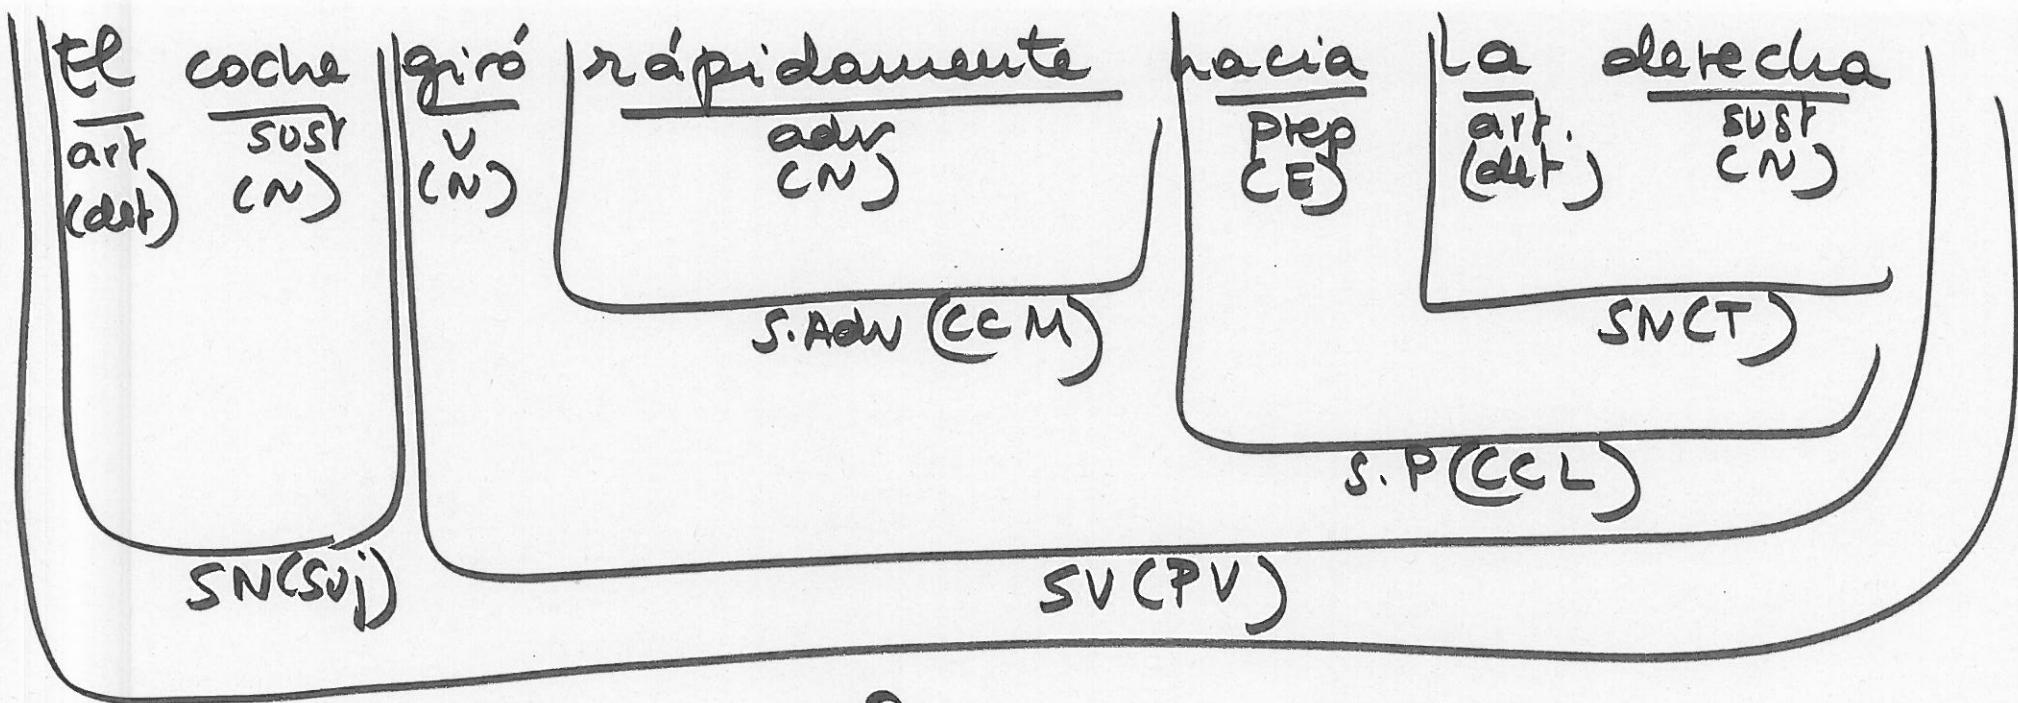 El coche giró rápidamente hacia la derecha
art sust V adv prep art. sust
(det) (N) (N) (N) (E) (det.) (N)
S.Adv (CCM) SN(T)
S.P(CCL)
SN(Suj) SV(PV)